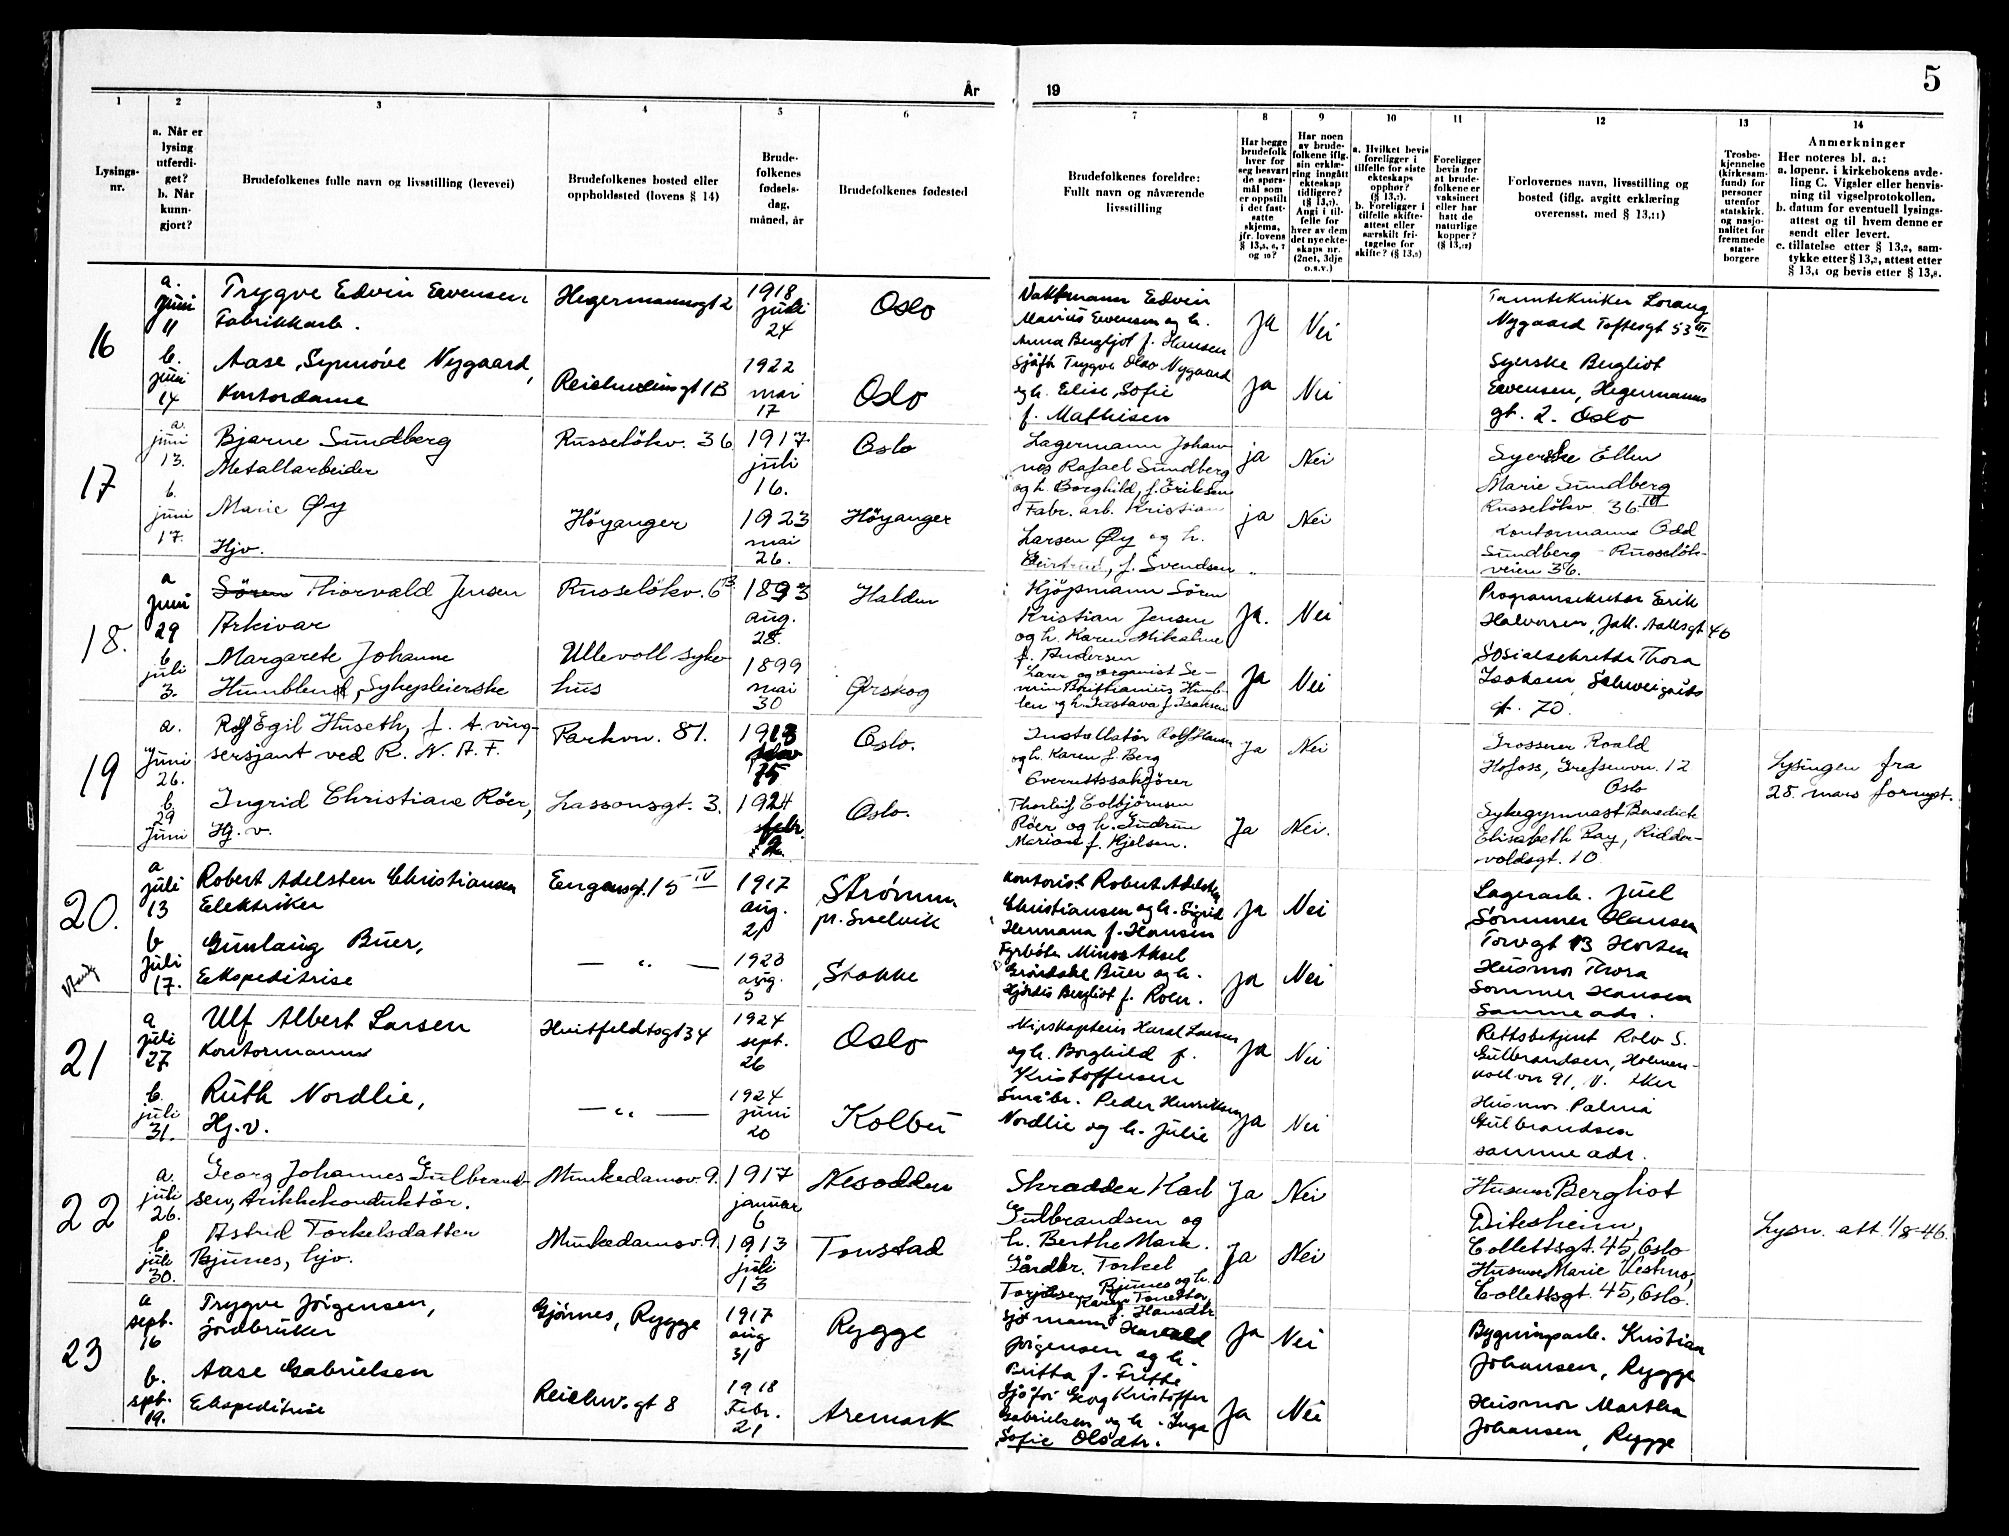 År
19
5
1
2
3
4
5
6
7
8
9
10
11
12
13
14
Lysings-
nr.
a. Når er
lysing
utferdi-
get?
b. Når
kunn-
gjort?
Brudefolkenes fulle navn og livsstilling (levevei)
Brudefolkenes bosted eller
oppholdssted (lovens § 14)
Brude-
folkenes
fødsels-
dag,
måned, år
Brudefolkenes fødested
Brudefolkenes foreldre:
Fullt navn og nåværende
livsstilling
Har begge
brudefolk
hver for
seg besvart
de spørs-
mål som
er oppstilt
i det fast-
satte
skjema,
jfr. lovens
Har noen
av brude-
folkene iflg.
sin erklæ-
ring inngått
ekteskap
tidligere?
Angi i til-
felle for
hver av dem
det nye ekte-
skaps nr.
(2net, 3dje
o.s.v.)
a. Hvilket bevis
foreligger i
tilfelle for siste
ekteskaps
opphør?
b. Foreligger i
tilfelle skifte-
attest eller
særskilt fri-
tagelse for
Foreligger
bevis for
at brude-
folkene er
vaksinert
eller har
hatt de
naturlige
kopper?
Forlovernes navn, livsstilling og
bosted (iflg. avgitt erklæring
overensst. med § 13,11)
Trosbe-
kjennelse
(kirkesam-
fund) for
personer
utenfor
statskirk.
og nasjo-
nalitet for
fremmede
stats-
borgere
Anmerkninger
Her noteres bl. a.:
a. løpenr. i kirkebokens avde-
ling C. Vigsler eller henvis-
ning til vigselprotokollen.
b. datum for eventuell lysings-
attest og til hvem denne er
sendt eller levert.
c. tillatelse etter § 13,2, sam-
tykke etter § 13,3, attest etter
§ 13,4 og bevis etter § 13,8.
16
a.
juni
11
b.
juni
14
Trygve Edvin Evensen
Fabrikkarb.
Aase Synnöve Nygaard,
Kontordame
Hegermannsgt 2
1918
juli
24
1922
mai
17
Oslo
Oslo
Vaktmann Edvin
Marius Evensen og h.
Anna Bergljot f. Hansen
Sjåfør Trygve Olav Nygaard
og h. Elise Sofie
f. Mathisen
Ja Nei
Ja Nei
Tanntekniker Lorang
Nygaard Toftesgt 53 III
Syerske Bergliot
Evensen, Hegermanns
gt. 2. Oslo
17
a.
juni
13.
b.
juni
17.
Bjarne Sundberg
Metallarbeider
Marie Øy
Hjv.
Russelökv. 36
Höyanger
1917
juli
16.
1923
mai
26.
Oslo
Höyanger
Lagermann Johan-
nes Rafael Sundberg
og h. Borghild, f. Eriksen
Fabr. arb. Kristian
Larsen Øy og h.
f. Svendsen
ja Nei
ja Nei
Syerske Ellen
Marie Sundberg
Russelökv. 36 III
Kontormann Odd
Sundberg - Russelök-
veien 36.
18.
a
juni
29
b
juli
3.
Sören Thorvald Jensen
Arkivar
Margarete Johanne
Humblen, Sykepleierske
Russelökv. 6 B
Ullevoll syke-
hus
1893
aug.
28.
1899
mai
30
Halden
Ørskog
Kjöpmann Sören
Kristian Jensen
og h. Karen Mikaline
f. Andersen
Lærer og organist Se-
verin Humb-
len og h. Gustava f. Isaksen
Ja. Nei
Ja Nei
Programsekretær Erik
Halvorsen, Jak. Aallsgt 40
Sosialsekretær Thora
Isaksen, Schweigaards
gt. 70.
19
a.
Juni
26.
b.
29
Juni
Rolf Egil Huseth, f. t. ving-
sersjant ved R. N. A. F.
Ingrid Christiane Röer,
Hj. v.
Parkvn. 81.
Lassonsgt. 3.
1918
15
1924
febr.
2.
Oslo.
Oslo.
Installatör Rolf
og h. Karen f. Berg
Overrettssakförer
Thorleif Colbjörnsen
Röer og h. Gudrun
Marione f. Hjelsen.
Ja Nei
Ja Nei.
Grosserer Roald
Hofoss, Grefsenvn. 12
Oslo
Sykegymnast Benedicte
Elisabeth Bay, Ridder-
voldsgt. 10
Lysingen fra
28. mars fornyet.
20.
a
juli
13
b
juli
17.
Robert Adelsten Christiansen
Elektriker
Gunlaug Buer,
Ekspeditrise
Engensgt. 15 IV
— „ —
1917
aug.
21
1923
aug.
5
Strömm
pr. Svelvik
Stokke
Kontorist Robert Adelsten
Christiansen og h. Sigrid
Hermana f. Hansen
Fyrböter Minos Aksel
Buer og h.
Hjördis Bergliot f. Roer.
Ja Nei
Ja Nei
Lagerarb. Juel
Sommer Hansen
Torvgt 13 Horten
Husmor Thora
Sommer Hansen
Samme adr.
21
a
juli
27
b.
juli
31.
Ulf Albert Larsen
Kontormann
Ruth Nordlie,
Hj.v.
Huitfeldtsgt 34
— „ —
1924
sept.
26
1924
juni
20
Oslo
Kolbu
Skipskaptein Harald Larsen
og h. Borghild f.
Kristoffersen
Småbr. Peder Henriksen
Nordlie og h. Julie
Ja Nei
Ja Nei
Rettsbetjent Rolv S.
Gulbrandsen, Holmen-
kollvn 91, V. Aker
Husmor Palma
Gulbrandsen
samme adr.
22
a.
juli
26.
b.
juli
30.
Georg Johannes Gulbrand-
sen, trikkekonduktör.
Astrid Torkelsdatter
Bjunes, hjv.
Munkedamsv. 9.
Munkedamsv. 9.
1917
januar
6
1913
juli
13
Nesodden
Tonstad
Skredder Karl
Gulbrandsen og
h. Berthe Marie.
Gårdbr. Torkel
Torjesen Bjunes og h.
Karen Tonette
f. Hansdtr
Ja Nei
Ja Nei
Husmor Bergliot
Ditesheim,
Collettsgt. 45, Oslo
Husmor Marie Vestmo,
Collettsgt. 45, Oslo.
Lysn. att 1/8-46.
23
a
sept.
16
b.
sept.
19.
Trygve Jörgensen,
jordbruker
Aase Gabrielsen
Ekspeditrise
Gjörnes, Rygge
Reichw. gt 8
1917
aug
31
1918
Febr.
21
Rygge
Aremark
Sjömann Harald
Jörgensen og h.
Britta f. Frithe
Sjåför Georg Kristoffer
Gabrielsen og h. Inga
Sofie Olsdtr.
Ja Nei
Ja Nei
Bygningsarb. Kristian
Johansen, Rygge
Husmor Martha
Johansen, Rygge